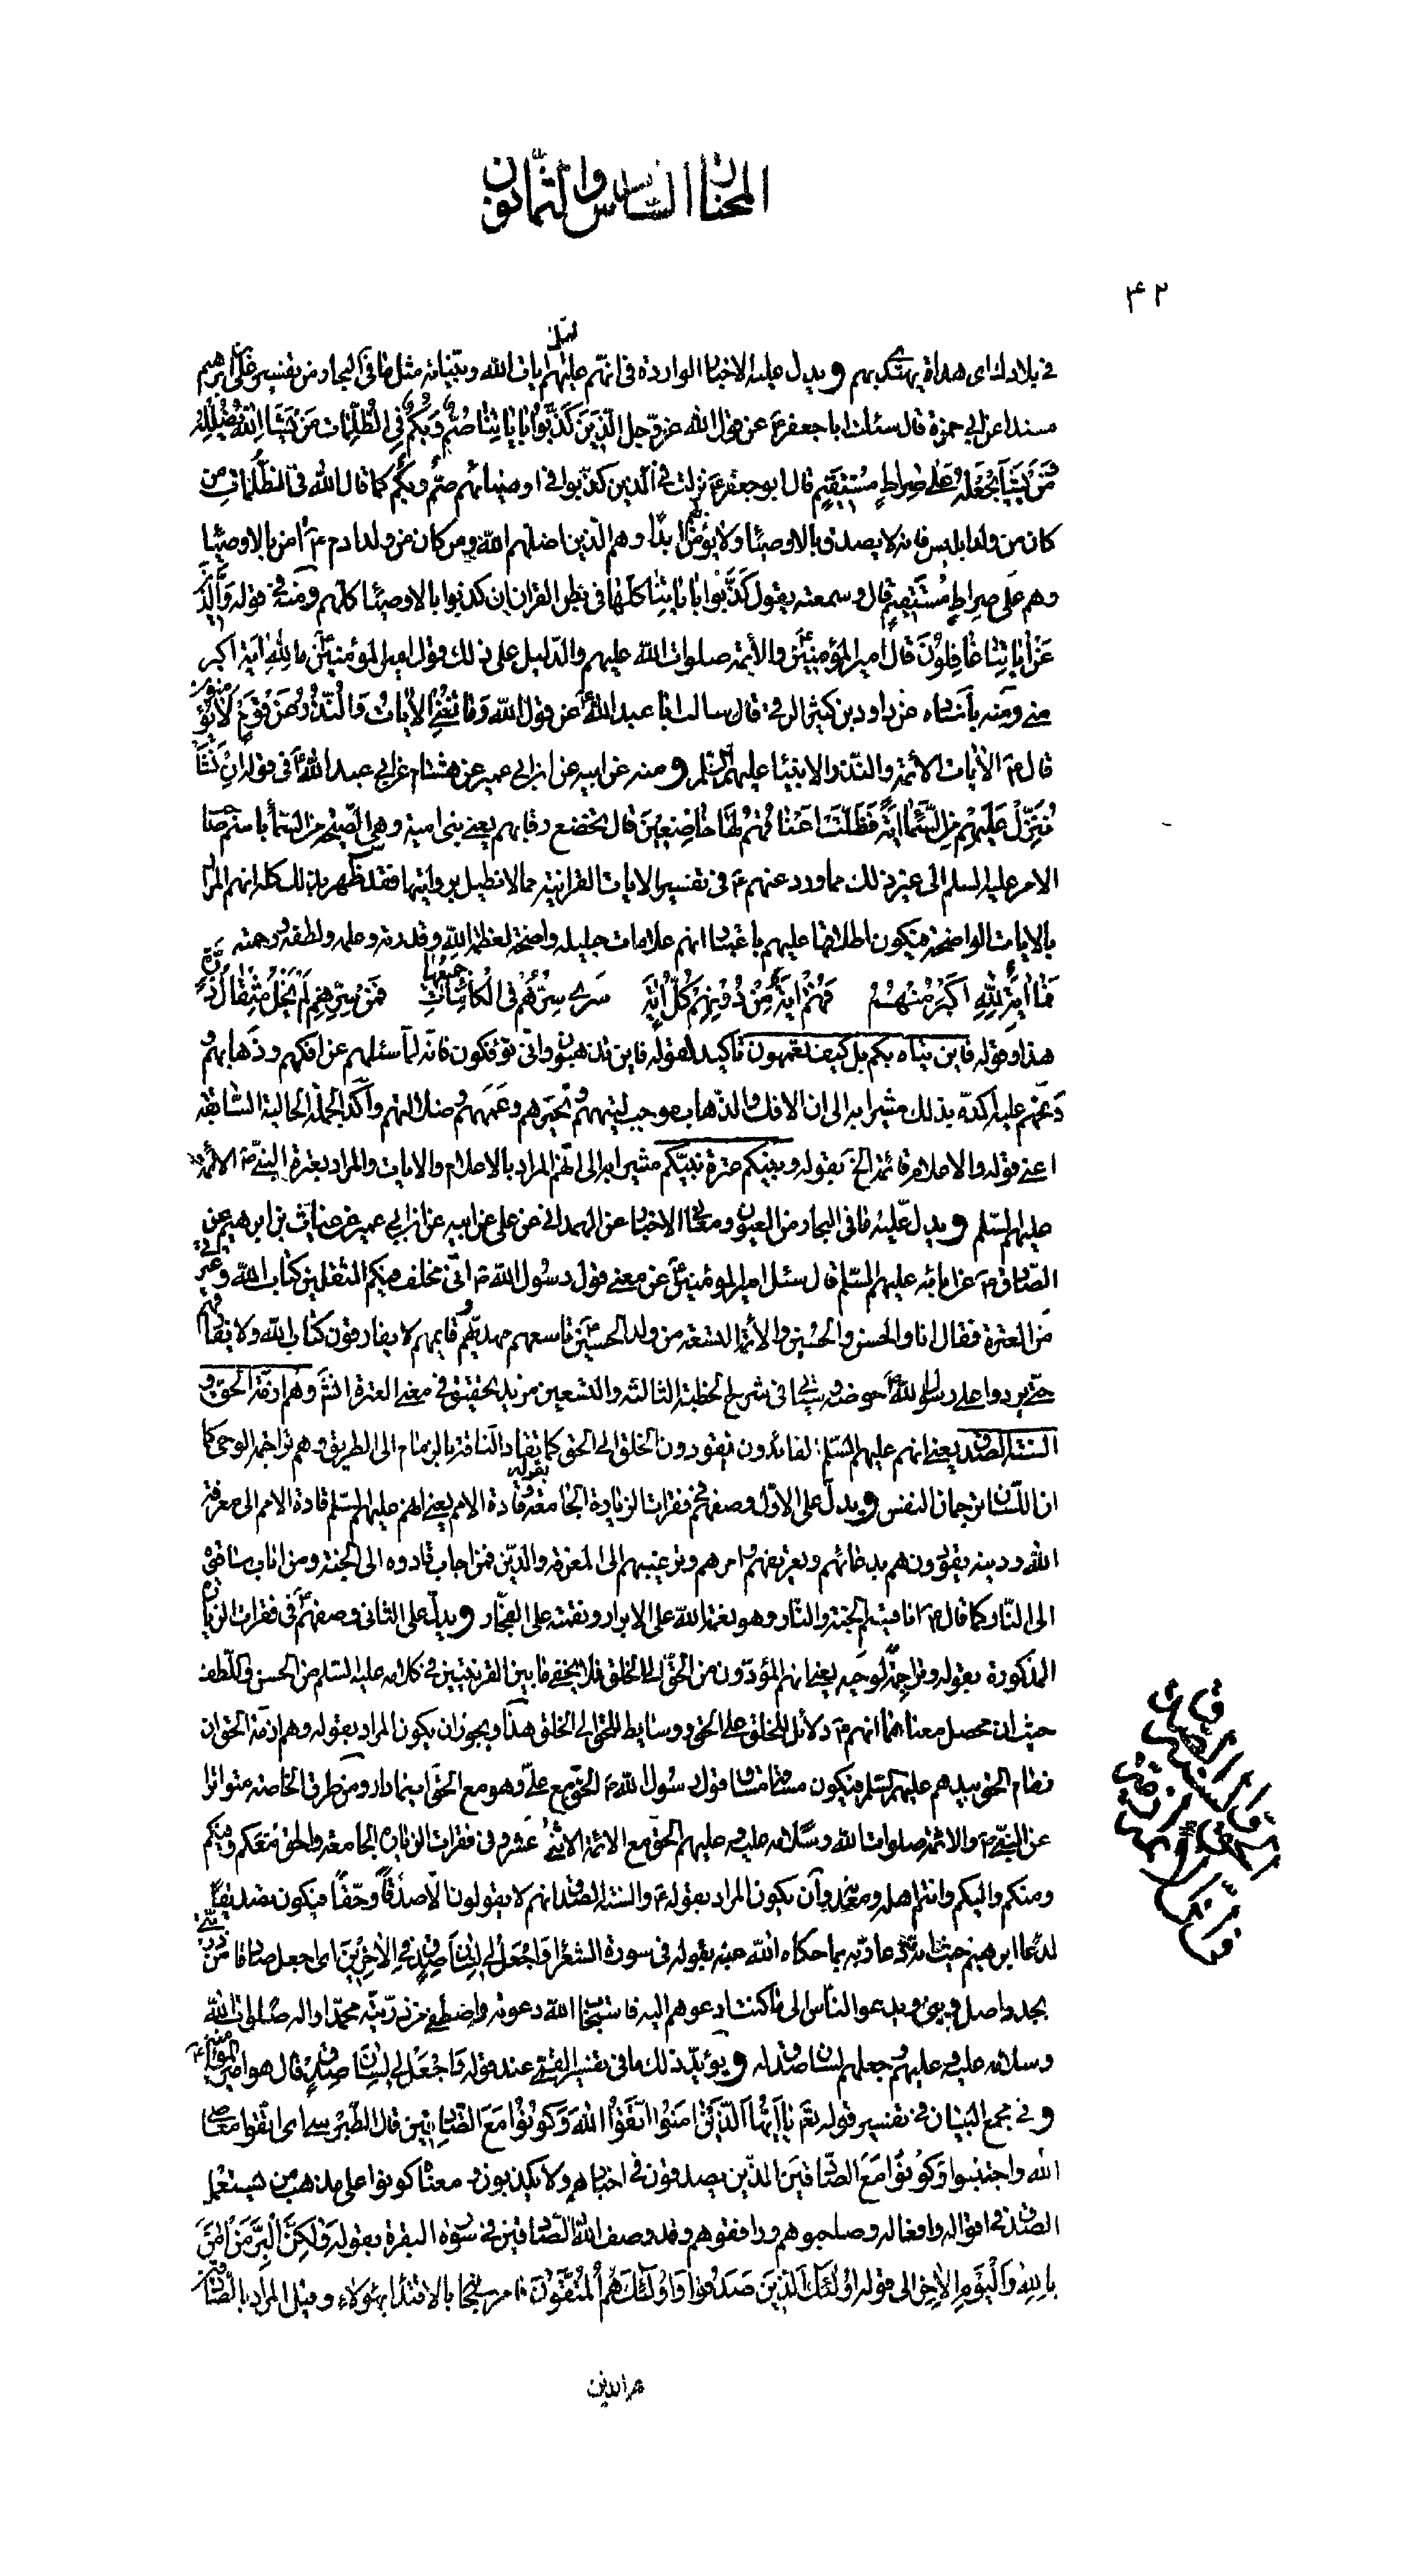 المختار السادس والثمانون
۴۲
في بلادك اى هداة يهتدى بهم ويدل عليه الاخبار الواردة في انهم عليهم السلام ايات الله وبيناته مثل ما في البحار من تفسير على بن ابراهيم
مسندا عن ابي حمزة قال سئلت ابا جعفر ع عن قول الله عز وجل الَّذينَ كَذَّبُوا بِاياتِنا صُمٌّ وَبُكْمٌ فِي الظُّلُماتِ مَنْ يَشَأِ اللهُ يُضْلِلْهُ
وَمَنْ يَشَأْ يَجْعَلْهُ عَلى صِراطٍ مُسْتَقيمٍ قال ابو جعفر ع نزلت في الذين كذبوا في اوصيائهم صم وبكم كما قال الله في الظلمات من
كان من ولد ابليس فانه لا يصدق بالاوصياء ولا يؤمن بهم ابدا وهم الذين اضلهم الله ومن كان من ولد ادم ع امن بالاوصياء
وهم على صِراطٍ مُسْتَقيمٍ قال وسمعته يقول كَذَّبُوا بِاياتِنا كلها في بطن القران ان كذبوا بالاوصياء كلهم ومنه في قوله وَالَّذينَ هُمْ
عَنْ اياتِنا غافِلُونَ قال امير المؤمنين والأئمة صلوات الله عليهم والدليل على ذلك قول امير المؤمنين ع ما لله اية اكبر
مني ومنه باسناده عن داود بن كثير الرقي قال سالت ابا عبد الله ع عن قول الله وَما تُغْنِي الْاياتُ وَالنُّذُرُ عَنْ قَوْمٍ لا يُؤْمِنُونَ
قال ع الايات الائمة والنذر الانبياء عليهم السلم ومنه عن ابيه عن ابن ابي عمير عن هشام عن ابي عبد الله ع في قوله اِنْ نَشَأْ
نُنَزِّلْ عَلَيْهِمْ مِنَ السَّماءِ ايَةً فَظَلَّتْ اَعْناقُهُمْ لَها خاضِعينَ قال تخضع رقابهم يعني بني امية وهي الصيحة من السماء باسم صاحب
الامر عليه السلم الى غير ذلك مما ورد عنهم ع في تفسير الايات القرانية مما لا نطيل بروايتها فقد ظهر بذلك كله انهم المراد
بالايات الواضحة فيكون اطلاقها عليهم باعتبار انهم علامات جليلة واضحة لعظمة الله وقدرته وعلمه ولطفه ورحمته
فَما ايَةٌ لِلّهِ اَكْبَرُ مِنْهُمُ فَهُمْ ايَةٌ مِنْ دُونِهِمْ كُلُّ ايَةٍ سَرى سِرُّهُمْ في الْكائِناتِ جميعها فَمِنْ سِرِّهِمْ لَمْ يَخْلُ مِثْقالُ ذَرَّةٍ
هذا وقوله فاين يتاه بكم بل كيف تعمهون تاكيد لقوله فاين تذهبون واني تؤفكون فانه لما سئلهم عن افكهم وذهابهم و
وبخهم عليه اكده بذلك مشيرا به الى ان الافك والذهاب موجب لتيههم وتحيرهم وعمههم وضلالتهم واكد الجملة الحالية السابقة
اعني قوله والاعلام قائمة الخ بقوله وبينكم عترة نبيكم مشيرا به الى انهم المراد بالاعلام والايات والمراد بعترة النبي ص الائمة
عليهم السلم ويدل عليه ما في البحار من العيون ومعاني الاخبار عن الهمداني عن على عن ابيه عن ابن ابي عمير عن غياث بن ابرهيم عن
الصادق ع عن ابائه عليهم السلم قال سئل امير المؤمنين ع عن معنى قول رسول الله ص اني مخلف فيكم الثقلين كتاب الله وعترتي
من العترة فقال انا والحسن والحسين والأئمة التسعة من ولد الحسين تاسعهم مهديهم وقائمهم لا يفارقون كتاب الله ولا يفارقهم
حتى يردوا على رسول الله ص حوضه وسياتي في شرح الخطبة الثالثة والتسعين مزيد تحقيق في معنى العترة انشاء الله وهم ازمة الحق و
السنة الصدق يعني انهم عليهم السلم القائدون يقودون الخلق الى الحق كما تقاد الناقة بالزمام الى الطريق وهم تراجمة الوحى كما
ان اللسان ترجمان النفس ويدل على الاول وصفهم في فقرات الزيارة الجامعة بقوله وقادة الامم يعني انهم عليهم السلم قادة الامم الى معرفة
الله ودينه يقودونهم بدعائهم وتعريضهم وامرهم وترغيبهم الى المعرفة والدين فمن اجاب قادوه الى الجنة ومن اناب ساقوه
الى النار كما قال ع انا قسيم الجنة والنار وهو نعمة الله على الابرار ونقمته على الفجار ويدل على الثاني وصفهم ع في فقرات الزيارة
المذكورة بقوله وتراجمة لوحيه يعني انهم المؤدون من الحق الى الخلق فلا يخفى ما بين القرينتين في كلامه عليه السلم من الحسن واللطف
حيث ان محصل معناهما انهم ع دلائل للخلق على الحق ووسايط للحق الى الخلق هذا ويجوز ان يكون المراد بقوله وهم ازمة الحق ان
زمام الحق بيدهم عليهم السلم فيكون مساقه مساق قول رسول الله ص الحق مع على وهو مع الحق اينما دار ومن طرق الخاصة متواترا
عن النبي ص والائمة صلوات الله وسلامه عليه وعليهم الحق مع الائمة الاثنى عشر وفي فقرات الزيارة الجامعة والحق معكم وفيكم
ومنكم واليكم وانتم اهله ومعدنه وان يكون المراد بقوله ع والسنة الصدق انهم لا يقولون الا صدقا وحقا فيكون تصديقا
لدعاء ابرهيم حيث دعا ربه بما حكاه الله عنه بقوله في سورة الشعراء وَاجْعَلْ لي لِسانَ صِدْقٍ فِي الْاخِرينَ اى اجعل صادقا من ذريتي
يجدد اصل ديني ويدعو الناس الى ما كنت ادعوهم اليه فاستجاب الله دعوته واصطفى من ذريته محمدا واله صلوات الله
وسلامه عليه وعليهم وجعلهم لسان صدق له ويؤيد ذلك ما في تفسير القمي عند قوله وَاجْعَلْ لي لِسانَ صِدْقٍ قال هو امير المؤمنين ع
وفي مجمع البيان في تفسير قوله تعم يا اَيُّهَا الَّذينَ امَنُوا اتَّقُوا اللهَ وَكُونُوا مَعَ الصّادِقينَ قال الطبرسي اى اتقوا معاصى
الله واجتنبوا وَكُونُوا مَعَ الصّادِقينَ الذين يصدقون في اخبارهم ولا يكذبون ومعناه كونوا على مذهب من يستعمل
الصدق في اقواله وافعاله وصاحبوهم ورافقوهم وقد وصف الله الصادقين في سورة البقرة بقوله وَلكِنَّ الْبِرَّ مَنْ امَنَ
بِاللهِ وَالْيَوْمِ الْاخِرِ الى قوله اُولئِكَ الَّذينَ صَدَقُوا وَاُولئِكَ هُمُ الْمُتَّقُونَ فامر سبحانه بالاقتداء بهؤلاء وقيل المراد بالصادقين
هم الذين